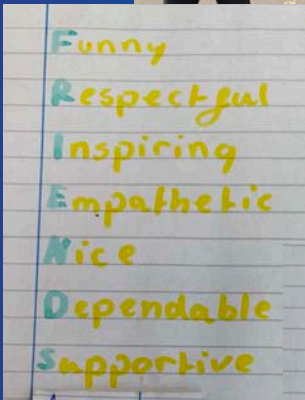 Funny
Respectful
Inspiring
Empathetic
Nice
Dependable
Supportive